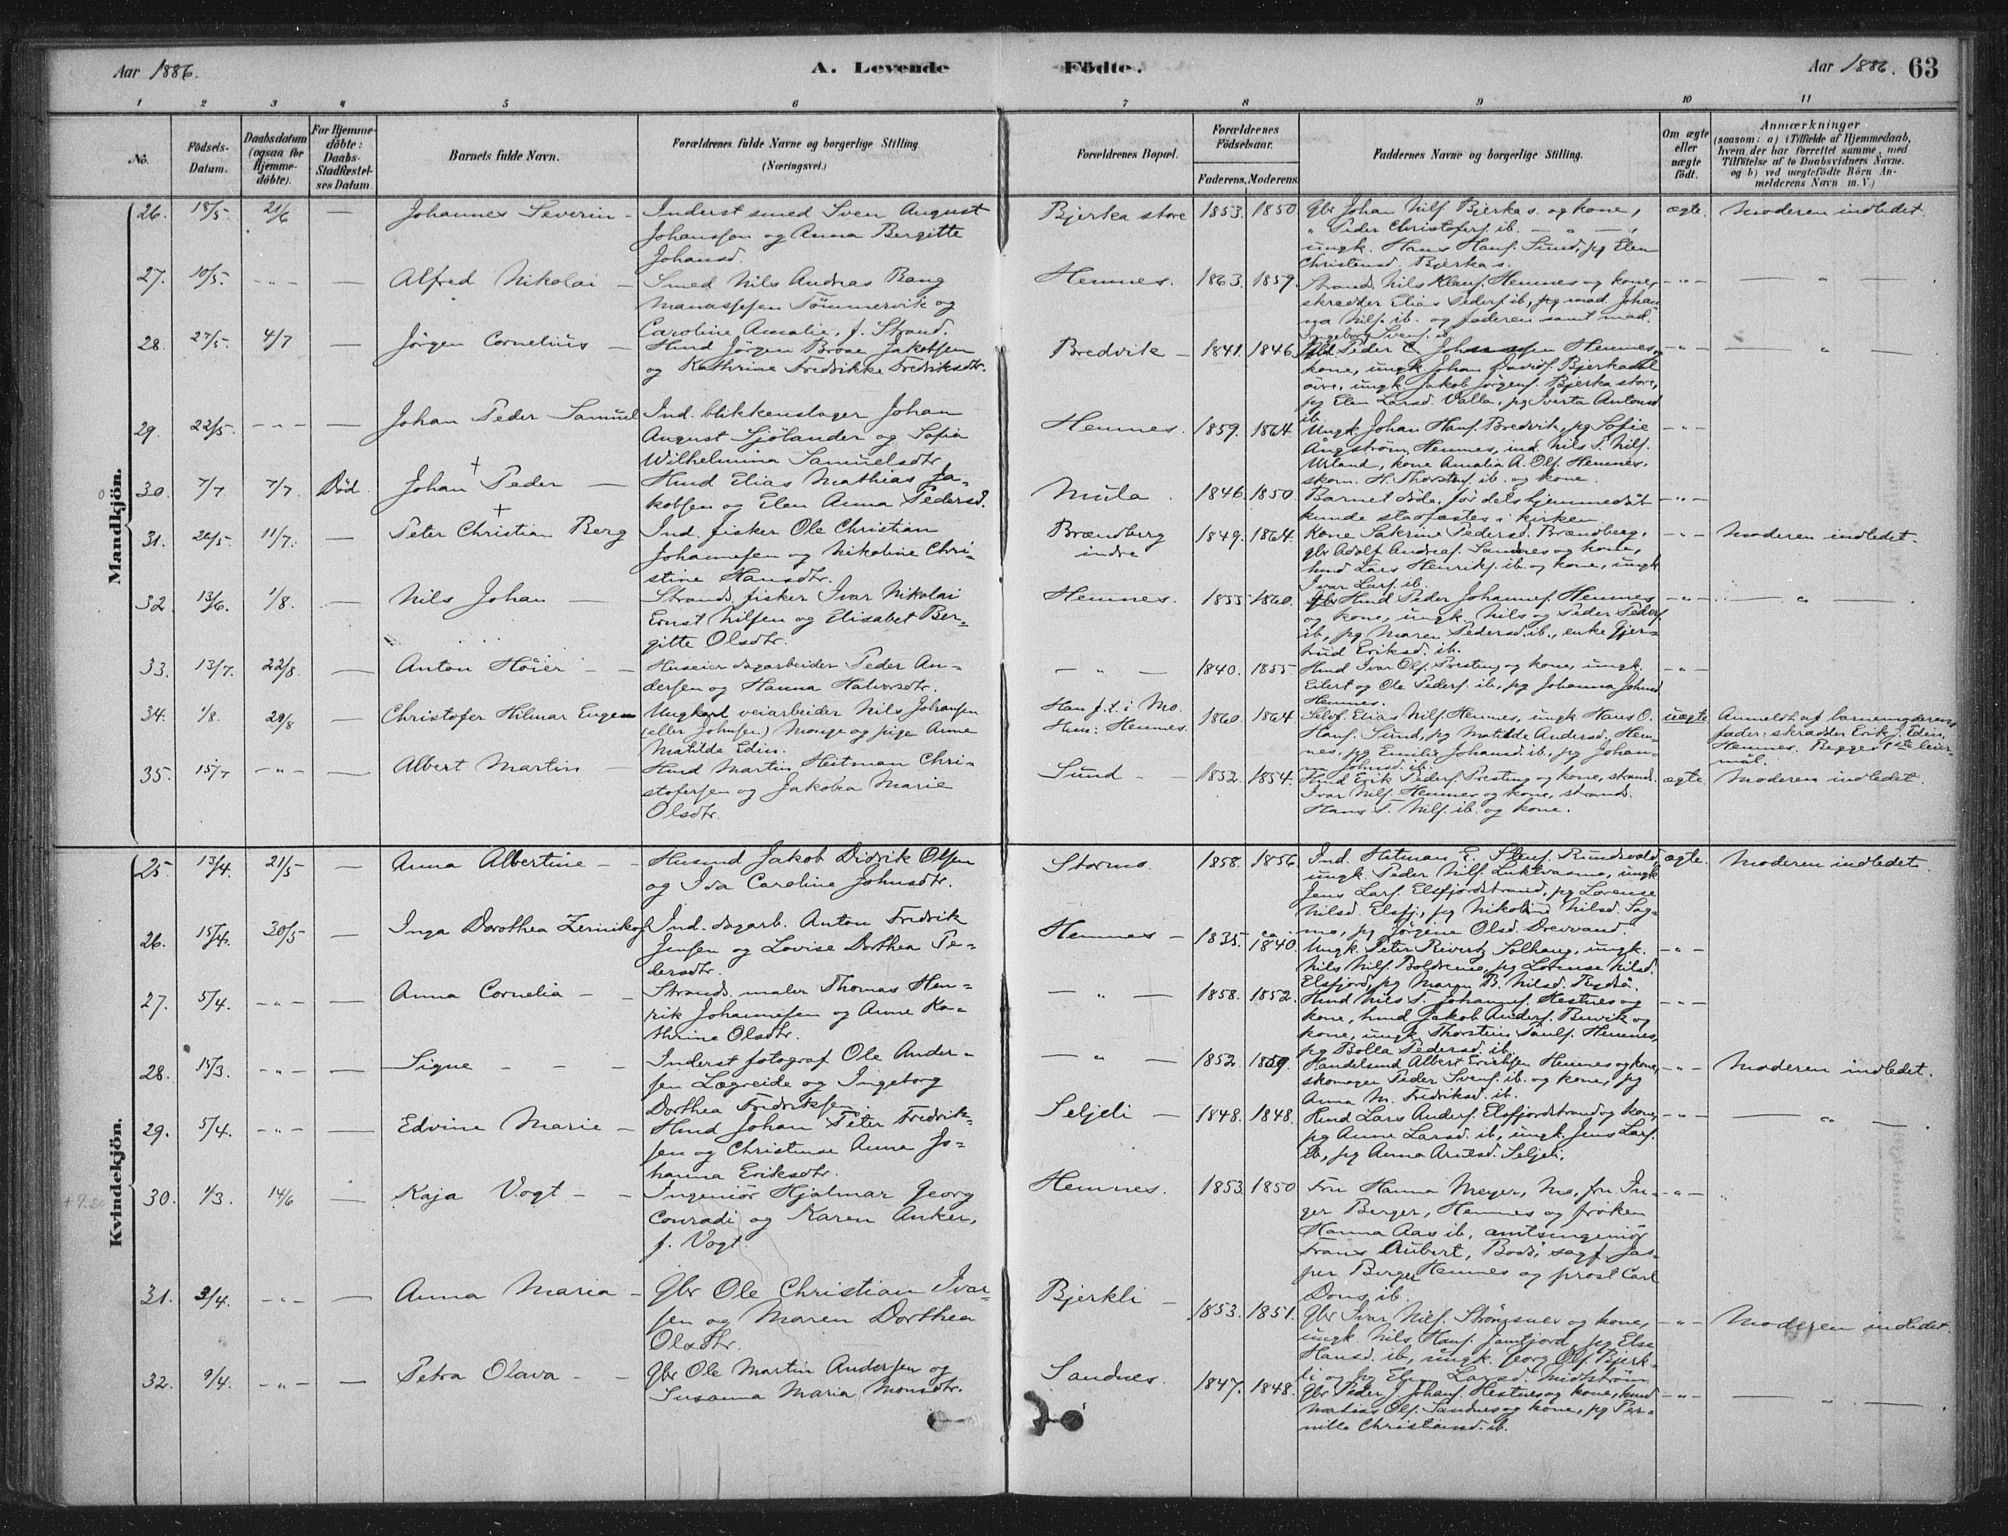 Aar 1886.
A. Levende
Födte.
Aar 1886. 63
1 2 3 4 5 6 7 8 9 10 11
No.
Födsels-
Datum.
Daabsdatum
(ogsaa for
Hjemme-
döbte).
For Hjemme-
döbte:
Daabs-
Stadfæstel-
ses Datum.
Barnets fulde Navn.
Forældrenes fulde Navne og borgerlige Stilling
(Næringsvei.)
Forældrenes Bopæl.
Forældrenes
Födselsaar.
Faderens. Moderens.
Faddernes Navne og borgerlige Stilling.
Om ægte
eller
uægte
födt.
Anmærkninger
(saasom: a) i Tilfælde af Hjemmedaab,
hvem der har forrettet samme, med
Tilföielse af to Daabsvidners Navne.
og b) ved uægtefödte Börn An-
melderens Navn m. V.)
Mandkjön.
26. 18/5 21/6 — Johannes Severin –
Inderst smed Sven August
Johanssen og Anna Bergitte
Johansd.
Bjerka store 1853. 1850.
Gbr Johan Nilss. Bjerka s. og kone,
" Peder Christofers. ib. — " —,
ungk. Hans Hans. Sund, pg Elen
Christensd. Bjerka s.
ægte. Moderen indledet.
27. 10/5. – " – — Alfred Nikolai –
Smed Nils Andreas Bang
Manassesen Tömmervik og
Caroline Amalie, f. Strand.
Hemnes. 1863. 1859.
Strands. Nils Klaus. Hemnes og kone,
skrædder Elias Peders. ib, pg mad. Johan
na Nils. ib. og faderen samt mad.
Ingeborg Svens. ib.
– " – — " —
28. 27/5 4/7 — Jörgen Cornelius –
Hmd Jörgen Brose Jakobsen
og Kathrine Fredrikke Fredriksdtr.
Bredvik – 1841. 1846
Peder C. Johannessen Hemnes og
kone, ungk Johan Davids. Bjerkadal
öire, ungk. Jakob Jörgens. Bjerka store,
pg Elen Larsd. Valla, pg Iverta Antonsd
ib.
– " – — " —
29. 22/5. – " – — Johan Peder Samuel
Ind. blikkenslager Johan
August Sjölander og Sofia
Wilhelmina Samuelsdtr.
Hemnes. 1859. 1864
Ungk. Johan Hans. Bredvik, pg Sofie
Ångström Hemnes, ind. Nils S. Nils.
Urland, kone Amalia A. Ols. Hemnes,
skom. H. Thorstens. ib. og kone.
– " –
30. 7/7 7/7. Död. Johan Peder –
Hmd Elias Mathias Ja-
kobsen og Elen Anna Pedersd.
Mula. 1846. 1850
Barnet döde, för dets hjemmedåb
kunde stadfæstes i kirken
– " –
31. 24/5. 11/7. — Peter Christian Berg
Ind. fisker Ole Christian
Johannesen og Nikoline Chri-
stine Hansdtr.
Brændberg
indre
1849. 1864.
Kone Sakrine Pedersd. Brændberg,
gbr Adolf Andreas. Sandnes og kone,
hmd Lars Henriks. ib. og kone, ungk
Ivar Lars. ib.
– " – Moderen indledet.
32. 13/6. 1/8. — Nils Johan –
Strands. fisker Ivar Nikolai
Ernst Nilsen og Elisabet Ber-
gitte Olsdtr.
Hemnes. 1855 1860.
Hmd Peder Johannes. Hemnes
og kone, ungk. Nils og Peder Peders.
ib, pg Maren Pedersd. ib., enke Gjer-
trud Eriksd. ib.
– " – — " —
33. 13/7. 22/8. — Anton Höier –
Huseier dagarbeider Peder An-
dersen og Hanna Halvorsdtr.
— " — 1840. 1855
Hmd Ivar Ols. Presteng og kone, ungk.
Eilert og Ole Peders. ib., pg Johanna Johnsd
Hemnes.
– " –
34. 1/8. 29/8 — Christofer Hilmar Eugen
Ungkarl veiarbeider Nils Johansen
(eller Johnsen) Monge og pige Anne
Matilda Edin.
Han f. t. i Mo.
Hun: Hemnes.
1860. 1864
Elias Nils. Hemnes, ungk Hans O.
Hans. Sund, pg Matilde Andersd, Hem-
nes, pg Emilie Johansd. ib., pg Johan-
na Johnsd. ib.
uægte Anmeldt af barnemoderens
fader: skrædder Erik J. Edin,
Hemnes. Begges 1ste leier-
mål.
35. 15/7 – " – — Albert Martin
Hmd Martin Heitman Chri-
stofersen og Jakobea Marie
Olsdtr.
Sund – 1852. 1854.
Hmd Erik Peders. Presteng og kone, strands.
Ivar Nils. Hemnes og kone, strands.
Hans T. Nils. ib. og kone.
ægte. Moderen indledet.
Kvindekjön.
25. 13/4. 21/5 — Anna Albertine – –
Husmd Jakob Didrik Olsen
og Iva Caroline Johnsdtr.
Stormo. 1858. 1856
Ind. Hetman E. Stens. Rundvold,
ungk. Peder Nils. Luktvasmo, ungk.
Jens Lars. Elsfjordstrand, pg Lorense
Nilsd. Elsfj., pg Nikoline Nilsd. Sag-
mo, pg Jörgine Olsd. Drevvand.
ægte. Moderen indledet.
26. 15/4. 30/5 — Inga Dorothea Zernikof
Ind. dagarb. Anton Fredrik
Jensen og Lovise Dorthea Pe-
dersdtr.
Hemnes – 1835. ca 1840.
Ungk. Peter Rivertz Solhaug, ungk.
Nils Nils. Boldrene, pg Lorense Nilsd.
Elsfjord, pg Maren B. Nilsd. Brydö.
– " –
27. 5/4. – " – — Anna Cornelia – –
Strands. maler Thomas Hen-
rik Johannesen og Anne Ka-
thrine Olsdtr.
— " — 1858. 1852.
Hmd Nils T. Johannes. Hestnes og
kone, hmd Jakob Anders. Buvik og
kone, ungk. Thorstein Pauls. Hemnes,
pg Bolla Pedersd. ib.
– " –
28. 15/3. – " – — Signe – – –
Inderst fotograf Ole Ander-
sen Lægreide og Ingeborg
Dorthea Fredriksen
— " — 1852. 1859.
Handelsmd Albert Eriksen Hemnes og kone,
skomager Peder Svens. ib. og kone, pg
Anna M. Fredriksd. ib.
– " – Moderen indledet.
29. 5/4. – " – — Edvine Marie –
Hmd Johan Peter Fredrik-
sen og Christense Anna Jo-
hanna Eriksdtr.
Seljeli – 1848. 1848.
Hmd Lars Anders. Elsfjordstrand og kone,
pg Anne Larsd. ib, ungk. Jens Lars.
ib, pg Anna Arntsd. Seljeli.
– " – — " —
30. 1/3. 14/6 — Kaja Vogt – –
Ingeniör Hjalmar Georg
Conradi og Karen Anker,
f. Vogt.
Hemnes. 1853. 1850
Fru Hanna Meyer, Mo, fru In-
ger Berger, Hemnes og fröken
Hanna Aas ib, amtsingeniör
Frans Aubert, Bodö, sagf. Jas-
per Berger Hemnes og prost Carl
Dons ib.
– " –
31. 2/4. – " – — Anna Maria –
Gbr Ole Christian Ivar-
sen og Maren Dorthea
Olsdtr.
Bjerkli – 1853. 1851.
Gbr Ivar Nils. Strömsnes og kone,
ungk. Nils Hans. Jamtjord, pg Else
Hansd. ib, ungk. Georg Ols. Bjerk-
li og pg Elen Larsd. Midtström.
– " – Moderen indledet.
32. 9/4. – " – — Petra Olava – –
Gbr Ole Martin Andersen og
Susanna Maria Monsdtr.
Sandnes. 1847. 1848.
Gbr Peder J. Johans. Hestnes og kone, hmd
Mathias Ols. Sandnes og kone, pg Per-
nille Christiansd. ib.
– " – — " —